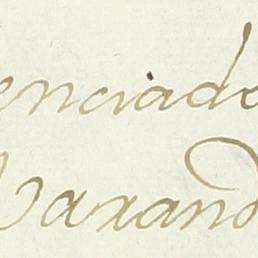 enciado
Varand